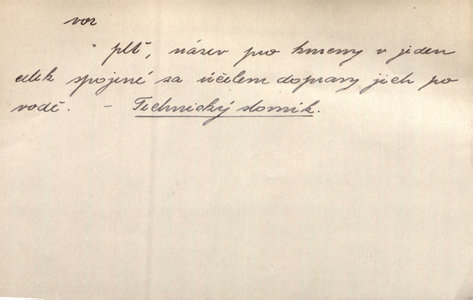 vor
" plť, název pro kmeny v jeden
celek spojené za účelem dopravy jich po
vodě." – Technický slovník.